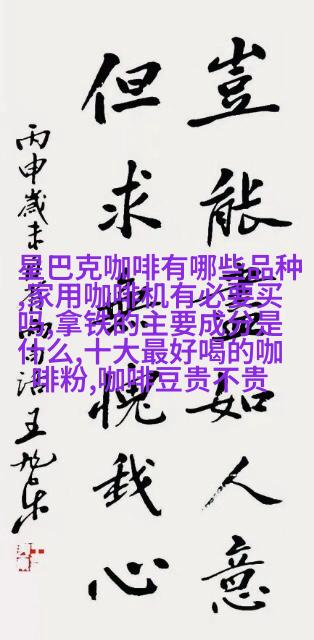 豈能盡如人意
但求無愧我心
丙申歲末
王旭東
星巴克咖啡有哪些品种
家用咖啡机有必要买
吗,拿铁的主要成分是
什么,十大最好喝的咖
啡粉,咖啡豆贵不贵